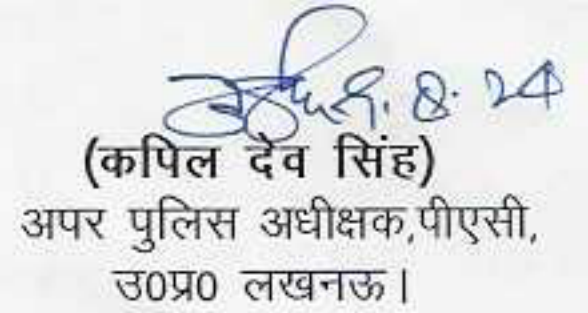 9.8.24
(कपिल देव सिंह)
अपर पुलिस अधीक्षक,पीएसी,
उ0प्र0 लखनऊ।